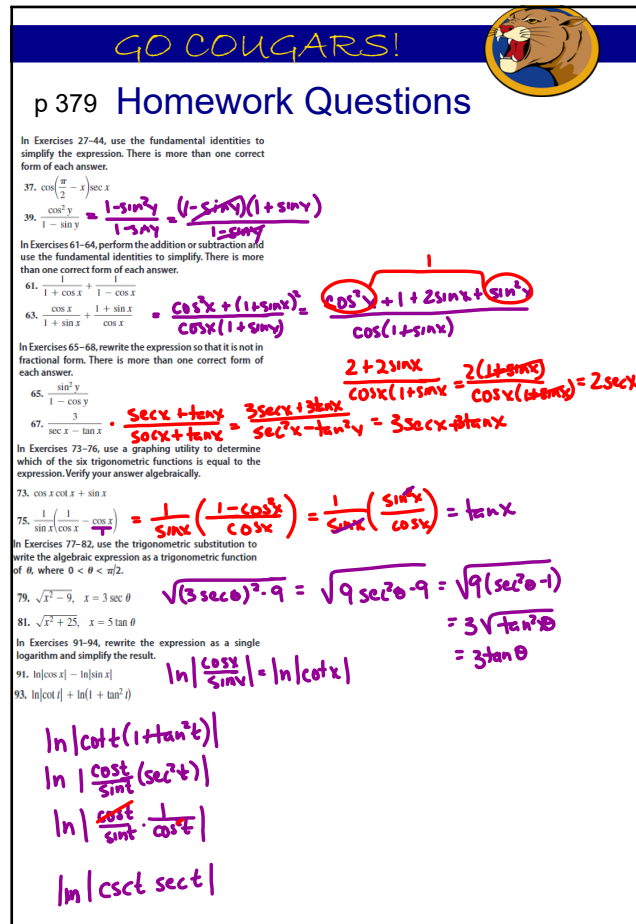 GO COUGARS!
p 379 Homework Questions
In Exercises 27–44, use the fundamental identities to
simplify the expression. There is more than one correct
form of each answer.
37. cos(π/2 − x) sec x
39. cos² y / (1 − sin y) = (1-sin²y)/(1-siny) = (1-siny)(1+siny)/(1-siny)
In Exercises 61–64, perform the addition or subtraction and
use the fundamental identities to simplify. There is more
than one correct form of each answer.
1
61. 1/(1 + cos x) + 1/(1 − cos x)
63. cos x/(1 + sin x) + (1 + sin x)/cos x = (cos²x + (1+sinx)²)/(cosx(1+sinx)) = (cos²x + 1 + 2sinx + sin²x)/(cos(1+sinx))
In Exercises 65–68, rewrite the expression so that it is not in
fractional form. There is more than one correct form of
each answer.
(2+2sinx)/(cosx(1+sinx = 2(1+sinx)/(cosx(1+sinx) = 2secx
65. sin² y/(1 − cos y)
67. 3/(sec x − tan x) · (secx+tanx)/(secx+tanx) = (3secx+3tanx)/(sec²x-tan²x) = 3secx+3tanx
In Exercises 73–76, use a graphing utility to determine
which of the six trigonometric functions is equal to the
expression. Verify your answer algebraically.
73. cos x cot x + sin x
75. 1/sin x (1/cos x − cos x/1) = 1/sinx ((1-cos²x)/cosx) = 1/sinx (sin²x/cosx) = tanx
In Exercises 77–82, use the trigonometric substitution to
write the algebraic expression as a trigonometric function
of θ, where 0 < θ < π/2.
79. √(x² − 9), x = 3 sec θ √((3secθ)²-9) = √(9sec²θ-9) = √(9(sec²θ-1)
81. √(x² + 25), x = 5 tan θ = 3√(tan²θ)
= 3tanθ
In Exercises 91–94, rewrite the expression as a single
logarithm and simplify the result.
91. ln|cos x| − ln|sin x| ln|cosx/sinx| = ln|cotx|
93. ln|cot t| + ln(1 + tan² t)
ln|cott(1+tan²t)|
ln|cost/sint (sec²t)|
ln|cost/sint · 1/cos²t|
ln|csct sect|